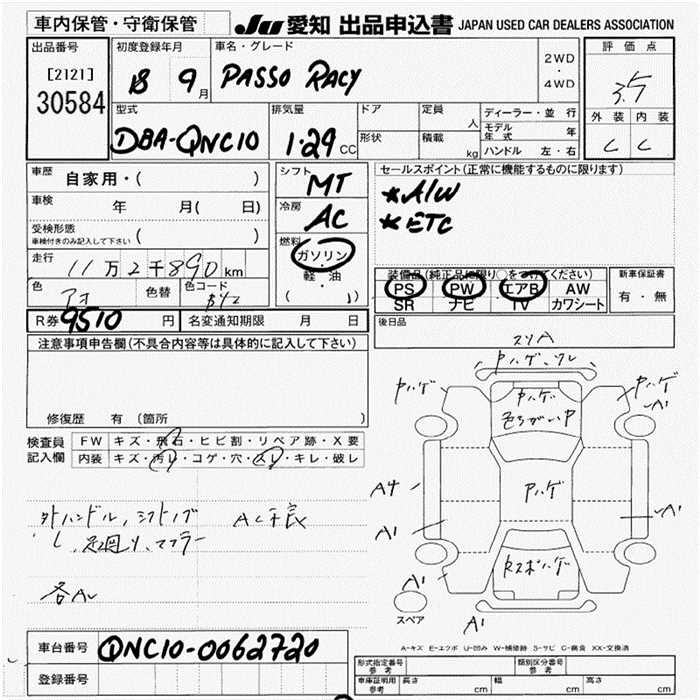 車内保管・守衛保管
JU 愛知 出品申込書 JAPAN USED CAR DEALERS ASSOCIATION
出品番号 初度登録年月 車名・グレード 2WD ・ 4WD 評価点
[2121] 18 9月 PASSO RACY 3.5
30584
型式 排気量 ドア 定員 人 ディーラー・並行 外装 内装
DBA-QNC10 1.29 CC 形状 積載 kg モデル年式 年 C C
ハンドル 左・右
車歴 自家用・( ) シフト MT セールスポイント(正常に機能するものに限ります)
車検 年 月( 日) 冷房 AC *A/W
受検形態 車検付きのみ記入して下さい ( ) *ETC
走行 11万2千890km 燃料 ガソリン・軽・油 ( )
装備品(純正品に限り○をつけてください) 新車保証書
色 アオ 色替 色コード PS PW エアB AW 有・無
SR ナビ TV カワシート
R券 9510円 名変通知期限 月 日 後日品
注意事項申告欄(不具合内容等は具体的に記入して下さい)
修復歴 有 〔箇所 〕
検査員記入欄 FW キズ・飛石・ヒビ割・リペア跡・X要
内装 キズ・汚レ・コゲ・穴・スレ・キレ・破レ
スリA
Pハゲ、ワレ
Pハゲ Pハゲ Pハゲ
色ちがいP A1
A4 Pハゲ A1
A1
外ハンドル、シフトノブ AC不良
し、足廻り、マフラー
各A
Pスポハゲ
A1
A1
スペア
A-キズ E-エクボ U-凹み W-補修跡 S-サビ C-腐食 XX-交換済
車台番号 QNC10-0062720
登録番号
形式指定番号 参考 類別区分番号 参考
車庫証明用 参考 長さ cm 幅 cm 高さ cm